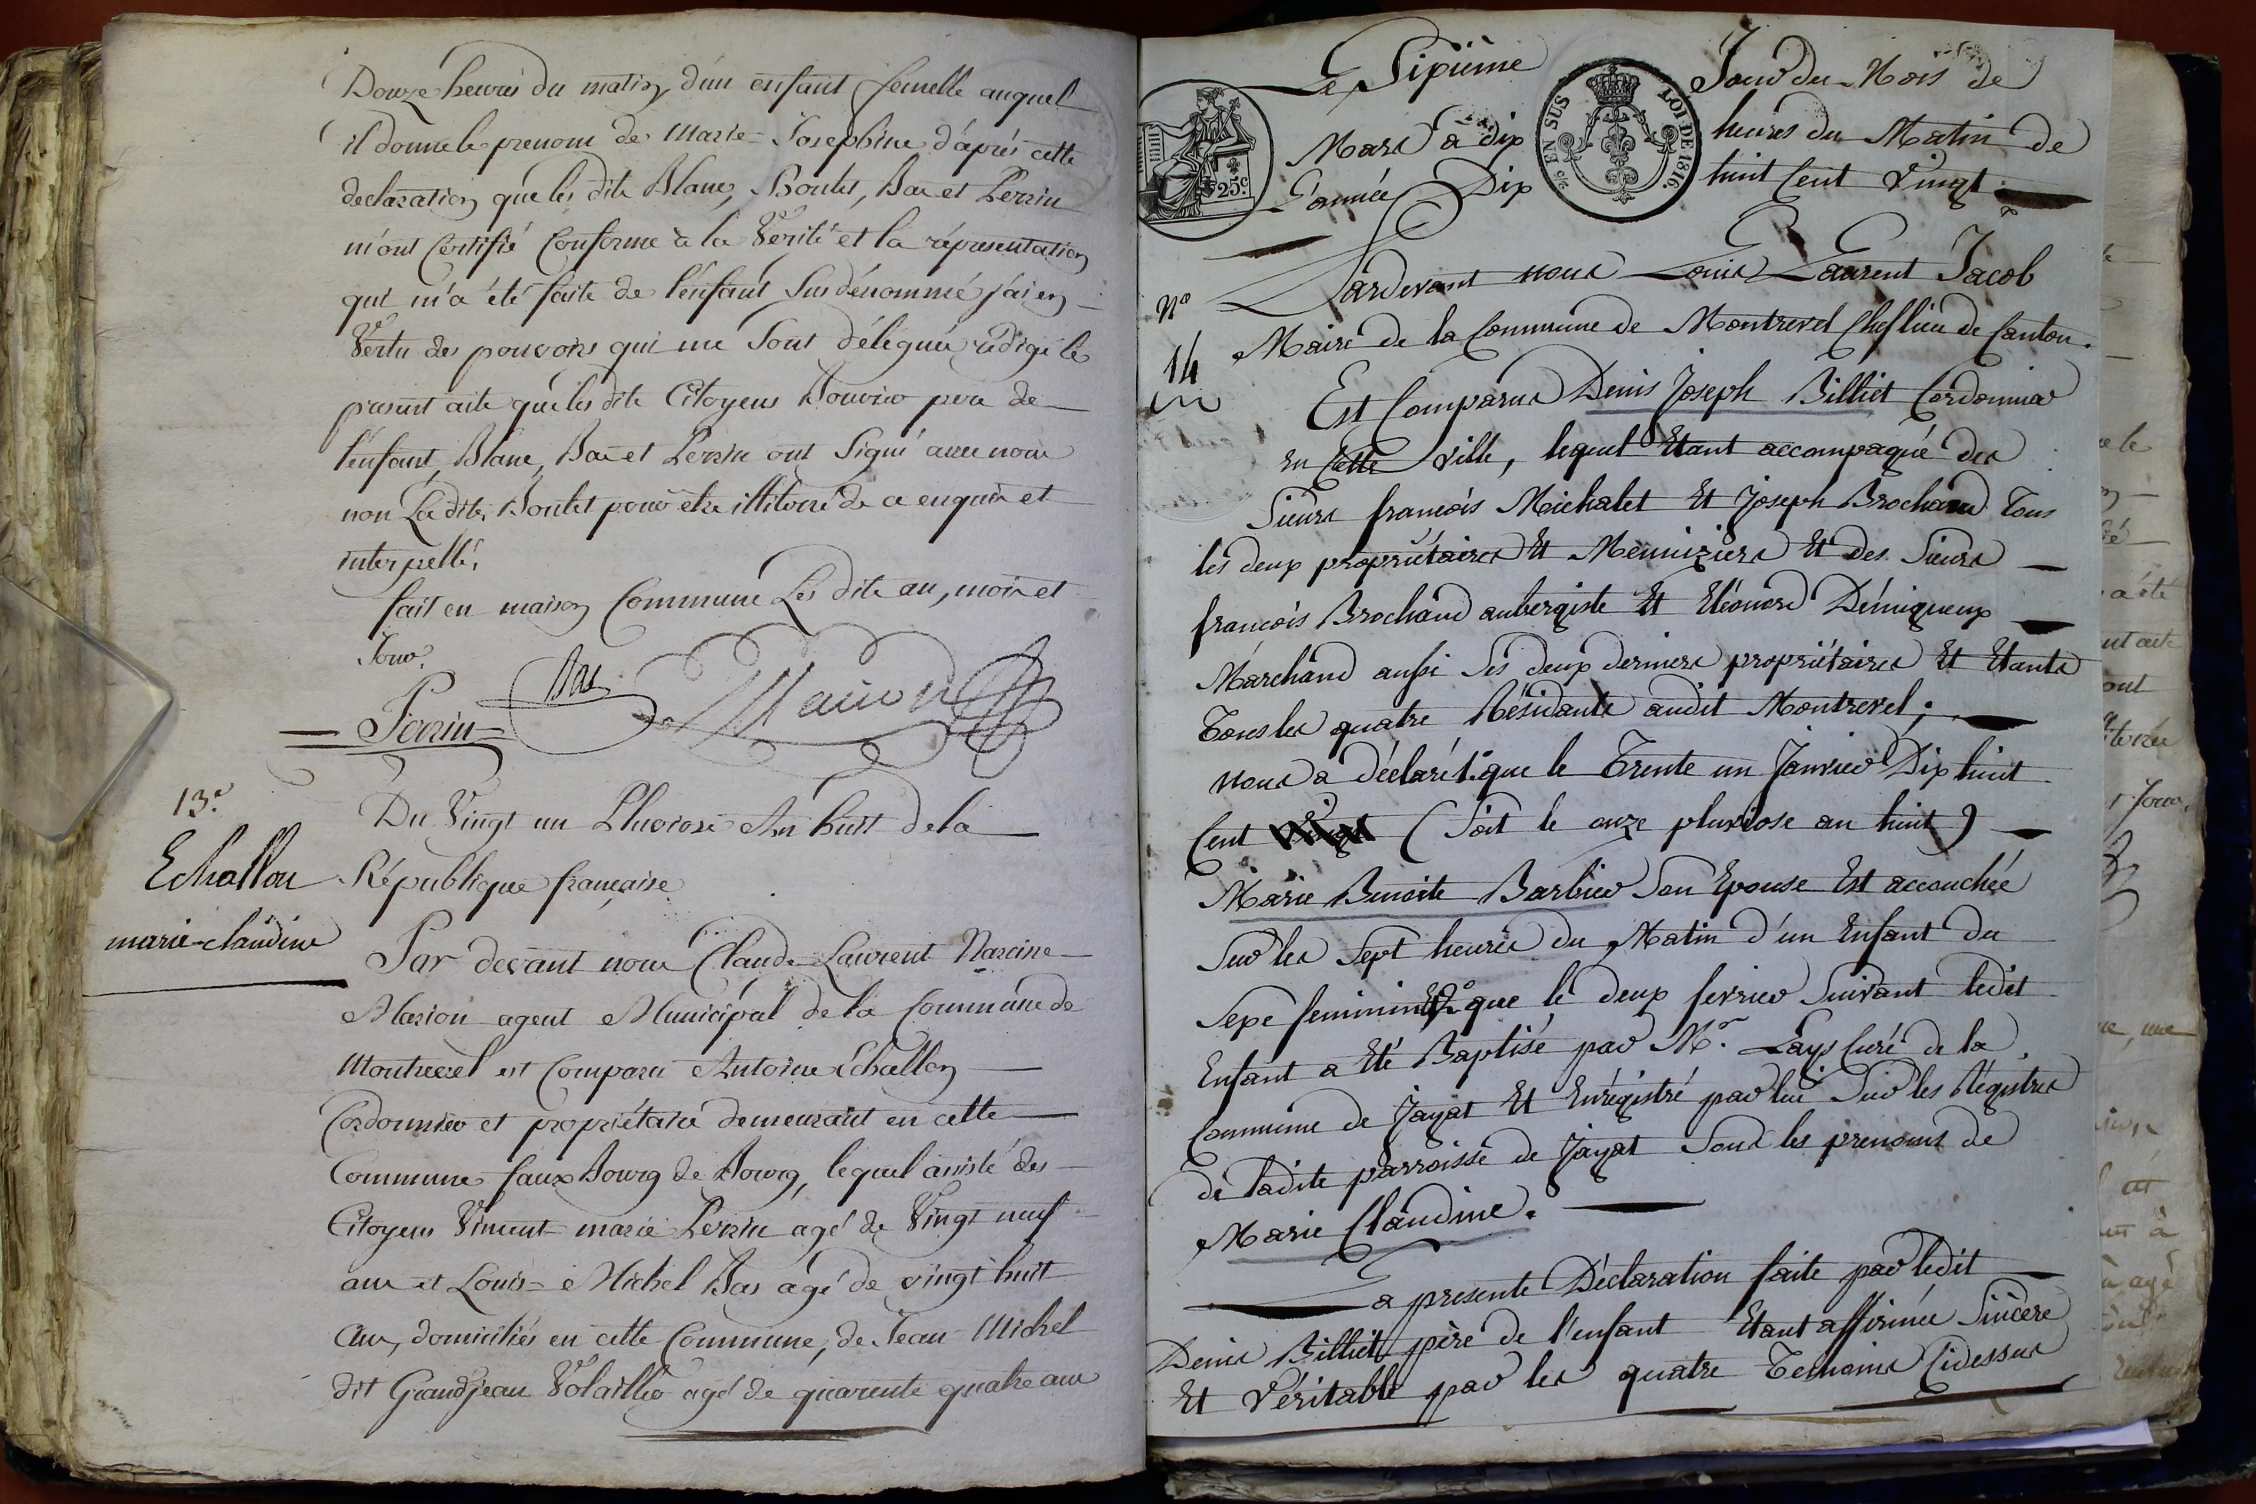 Douze heures du matin d'un enfant femelle auquel
il donne le prenom de Marie-Josephine d'aprés cette
declaration que les dits Blanc, Boulet, Bac et Perrin
m'ont Certifié Conforme à la Verité et la répresentation
qui m'a été faite de l'enfant Susdénommé j'ai en
Vertu des pouvoirs qui me Sont délégués rédigé le
présent acte que les dits Citoyens Bouvier pere de
l'enfant, Blanc, Bac et Perrin ont Signé avec nous
non Ladite Boulet pour être illiterée de ce enquise et
interpellé,
fait en maison Commune Les dits an, mois et
Jour.
Bac
Perrin
Marion
13.e
Echallon
marie-claudine
Du Vingt un Pluviose An huit de la
République française
Par devant nous Claude-Laurent Narcisse
Marion agent Municipal de la Commune de
Montrevel est Comparu Antoine Echallon
Cordonnier et propriétaire demeurant en cette
Commune faux Bourg de Bourg, lequel assisté des
Citoyens Vincent marie Perrin agé de Vingt neuf
ans et Louis-Michel Bas agé de vingt huit
ans, domiciliés en cette Commune, de Jean Michel
dit Grandjean Volaillier agé de quarente quatre ans
Le Sixième Jour du Mois de
Mars à dix heures du Matin de
L'année Dix huit Cent Vingt
EN SUS
LOI DE 1816.
25c
Pardevant nous Louis Laurent Jacob
Maire de la Commune de Montrevel Cheflieu de Canton.
No
14
Est Comparus Denis Joseph Billiet Cordonnier
en Cette ville, lequel Etant accompagné des
Sieurs francois Michalet Et Joseph Brochand Tous
les deux propriétaires Et Menuiziers Et des Sieurs
francois Brochand aubergiste Et Eléonord Dénigueux
Marchand aussi Ses deux derniers propriétaires Et Etants
Tous les quatre Résidants audit Montrevel;
nous a déclaré 1.º que le Trente un Janvier Dix huit
Cent (Soit le onze pluviose an huit)
Marie Benoite Barbier Son Epouse Est accouchée
Sur les Sept heures du Matin d'un Enfant du
Sexe feminin Et 2.º que le deux fevrier Suivant ledit
Enfant a Eté Baptisé par Mr. Lays Curé de la
Commune de Jayat Et Enrégistré par lui Sur les Régistres
de ladite parroisse de Jayat Sous les prenoms de
Marie Claudine.
La presente Déclaration faite par ledit
Denis Billiet père de l'enfant Etant affirmée Sincère
Et Véritable par les quatre Temoins Cidessus